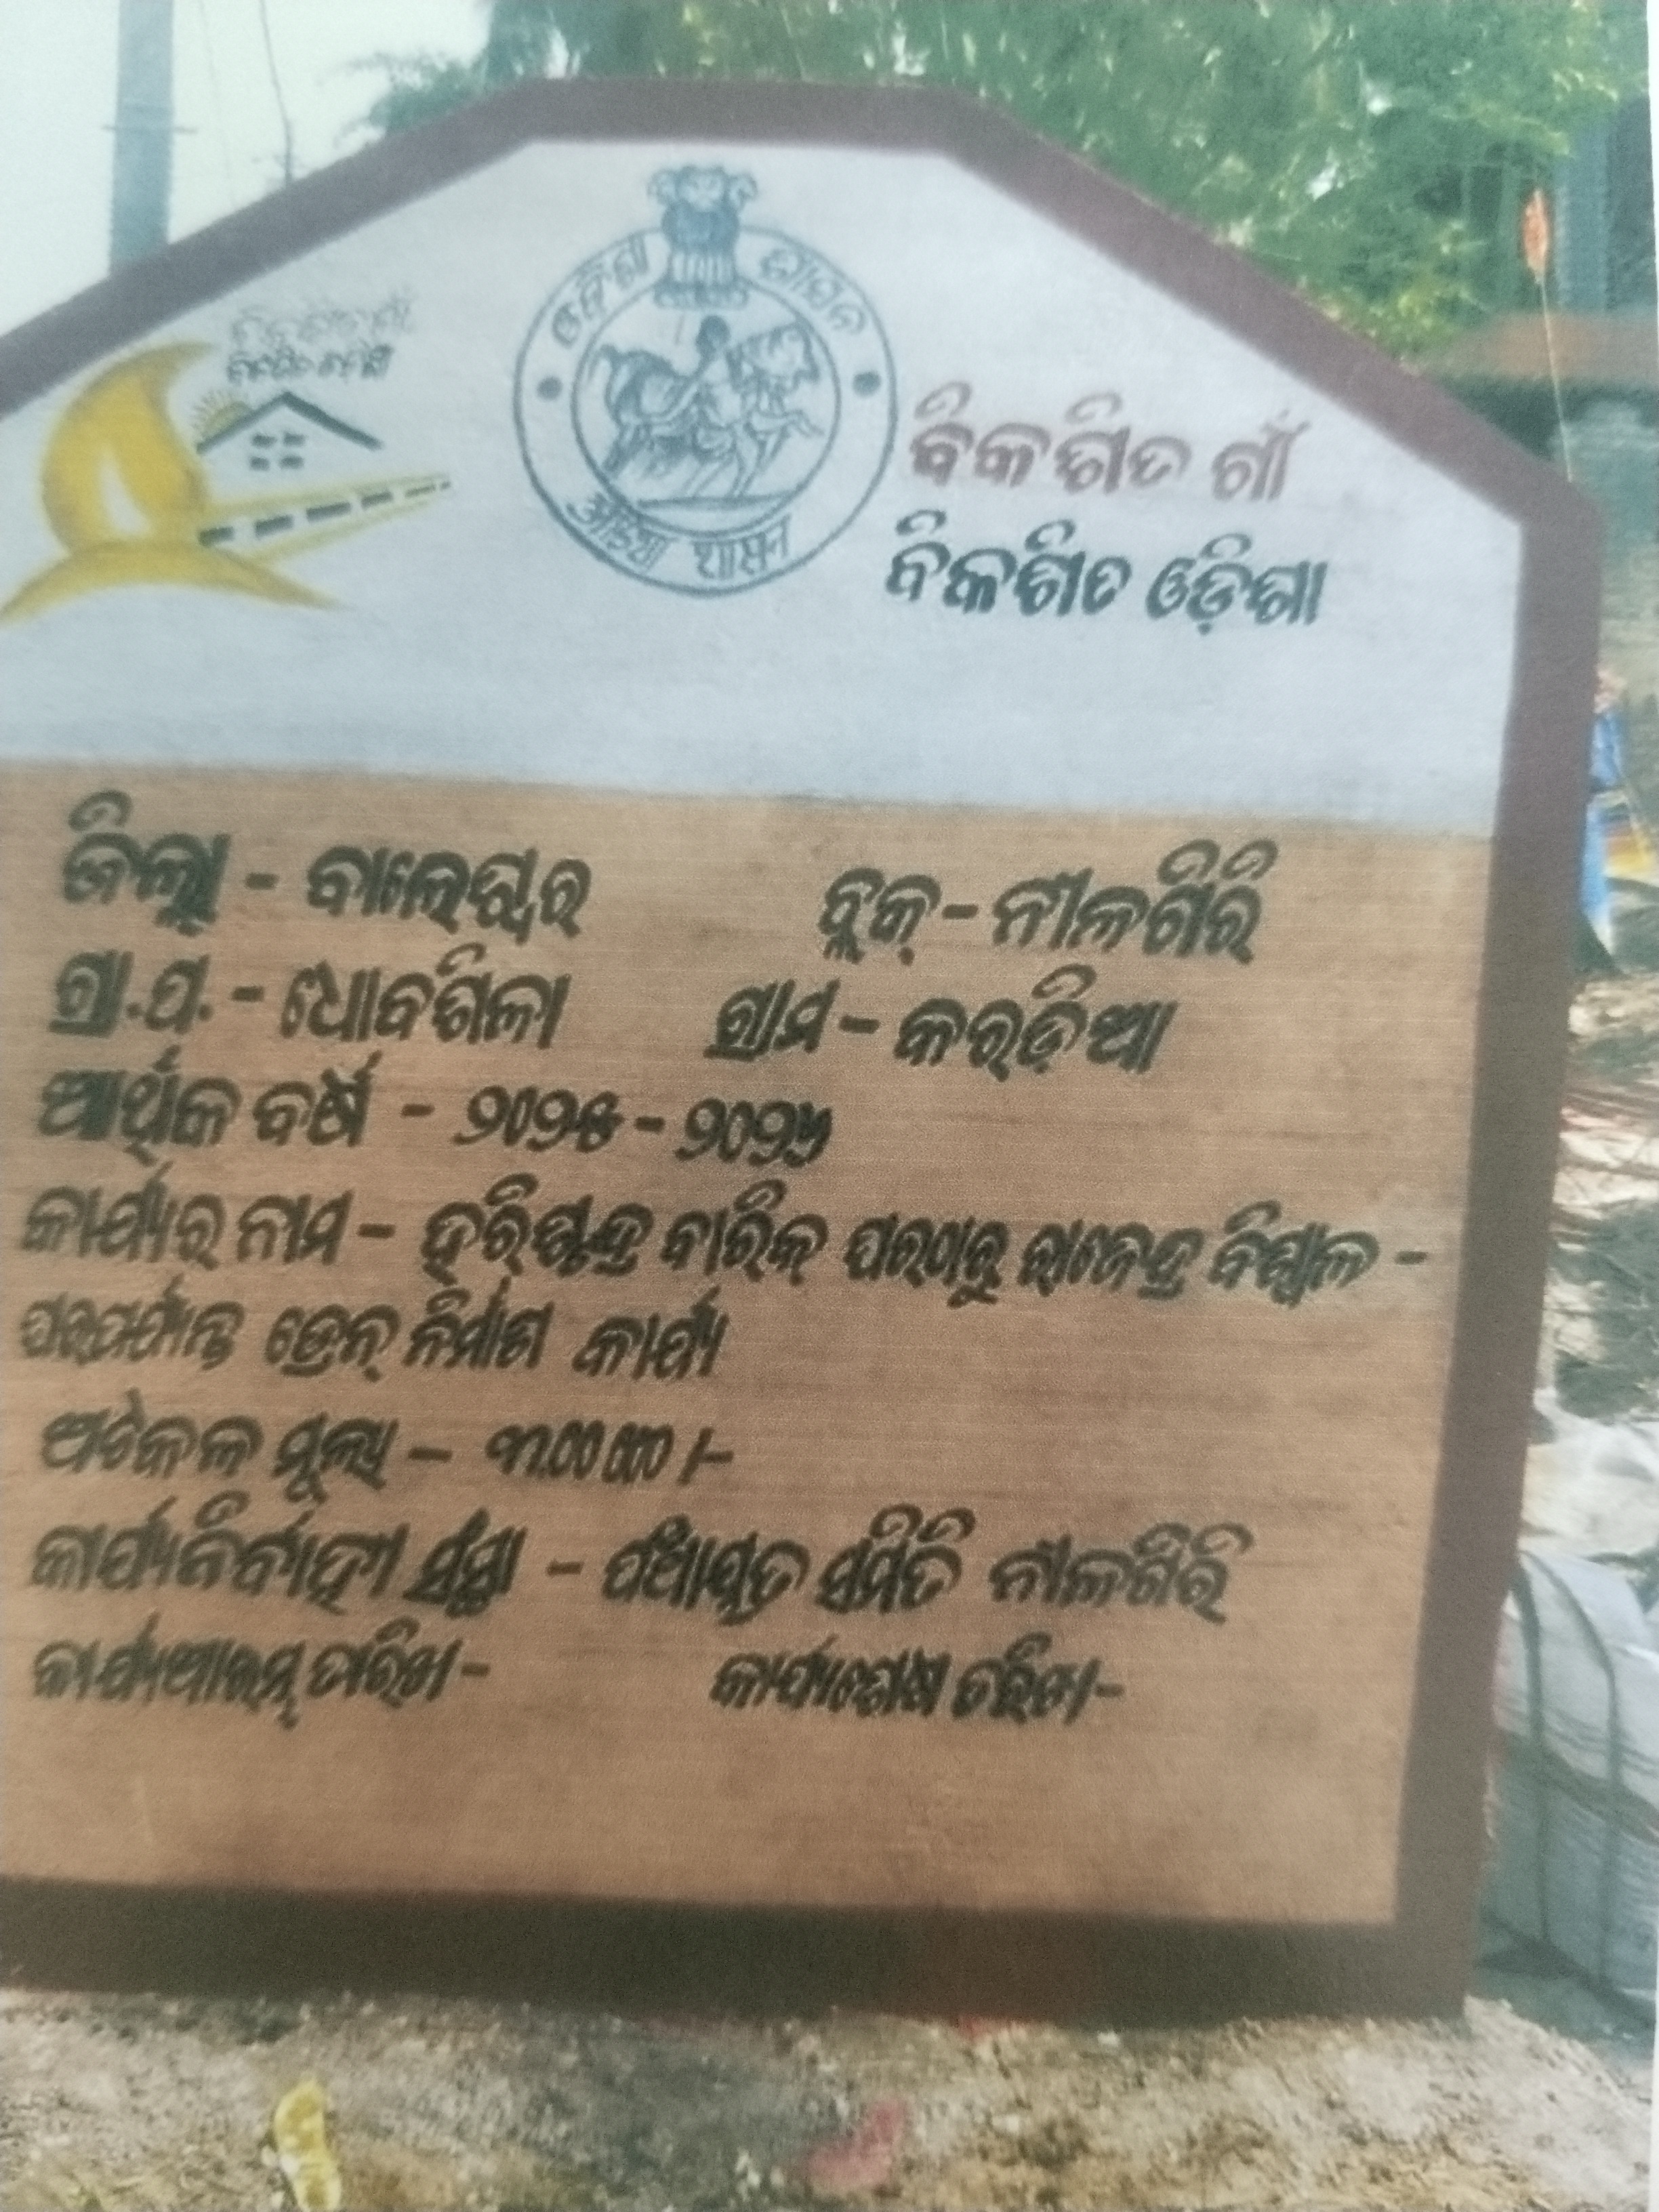 ବିକଶିତ ଗାଁ
ବିକଶିତ ଓଡ଼ିଶା
ଓଡ଼ିଶା ଶାସନ
ओडिआ शासन
ବିକଶିତ ଗାଁ
ବିକଶିତ ଓଡ଼ିଶା
ଜିଲ୍ଲା - ବାଲେଶ୍ୱର ବ୍ଲକ୍ - ନୀଳଗିରି
ଗ୍ରା.ପ. - ଧୋବଶିଳା ଗ୍ରାମ - କରଡ଼ିଆ
ଆର୍ଥିକ ବର୍ଷ - ୨୦୨୫ - ୨୦୨୬
କାର୍ଯ୍ୟର ନାମ - ହରିଶ୍ଚନ୍ଦ୍ର ବାରିକ୍ ଘରଠାରୁ ରାଜେନ୍ଦ୍ର ବିଶ୍ୱାଳ -
ଘରପର୍ଯ୍ୟନ୍ତ ଡ୍ରେନ୍ ନିର୍ମାଣ କାର୍ଯ୍ୟ
ଅଟକଳ ମୂଲ୍ୟ -
କାର୍ଯ୍ୟନିର୍ବାହୀ ସଂସ୍ଥା - ପଂଚାୟତ ସମିତି ନୀଳଗିରି
କାର୍ଯ୍ୟଆରମ୍ଭ ତାରିଖ - କାର୍ଯ୍ୟଶେଷ ତାରିଖ -